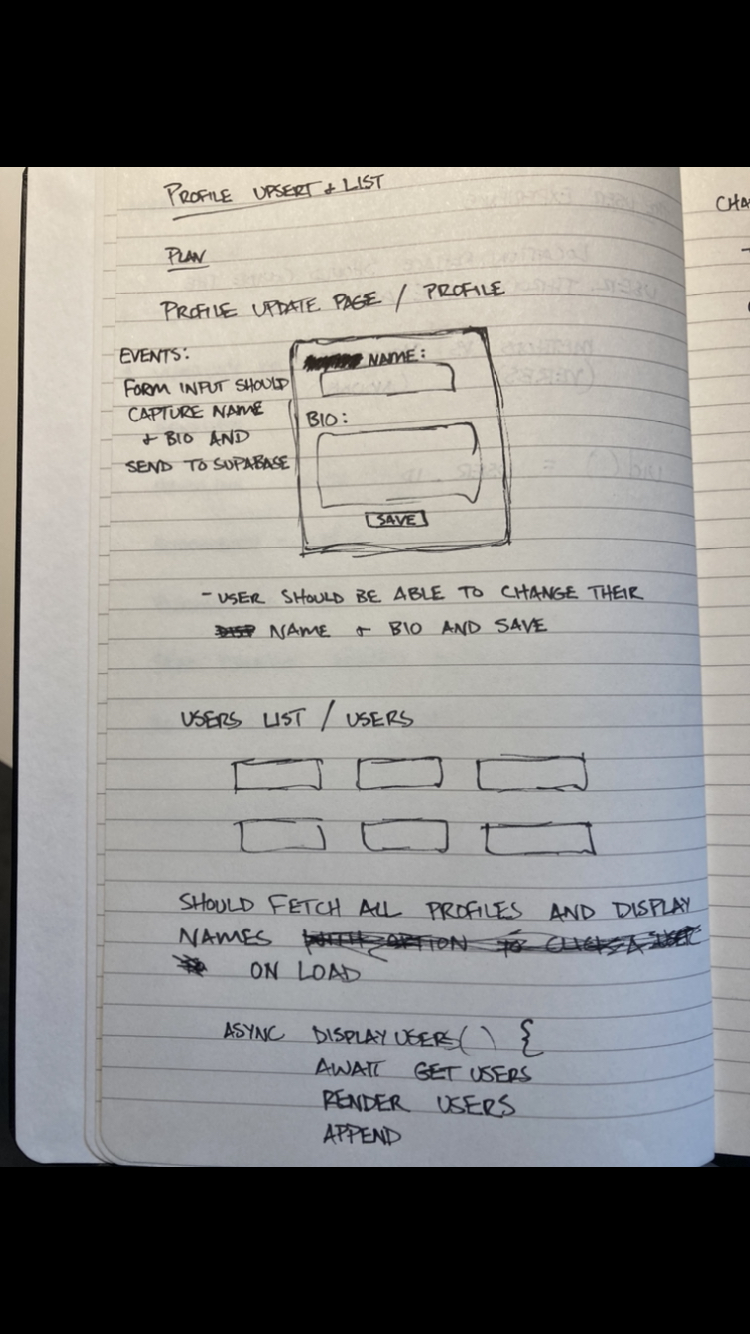 PROFILE UPSERT + LIST
PLAN
PROFILE UPDATE PAGE / PROFILE
EVENTS:
FORM INPUT SHOULD
CAPTURE NAME
+ BIO AND
SEND TO SUPABASE
NAME:
BIO:
SAVE
- USER SHOULD BE ABLE TO CHANGE THEIR
NAME + BIO AND SAVE
USERS LIST / USERS
SHOULD FETCH ALL PROFILES AND DISPLAY
NAMES
ON LOAD
ASYNC DISPLAY USERS( ) {
AWAIT GET USERS
RENDER USERS
APPEND
CHA